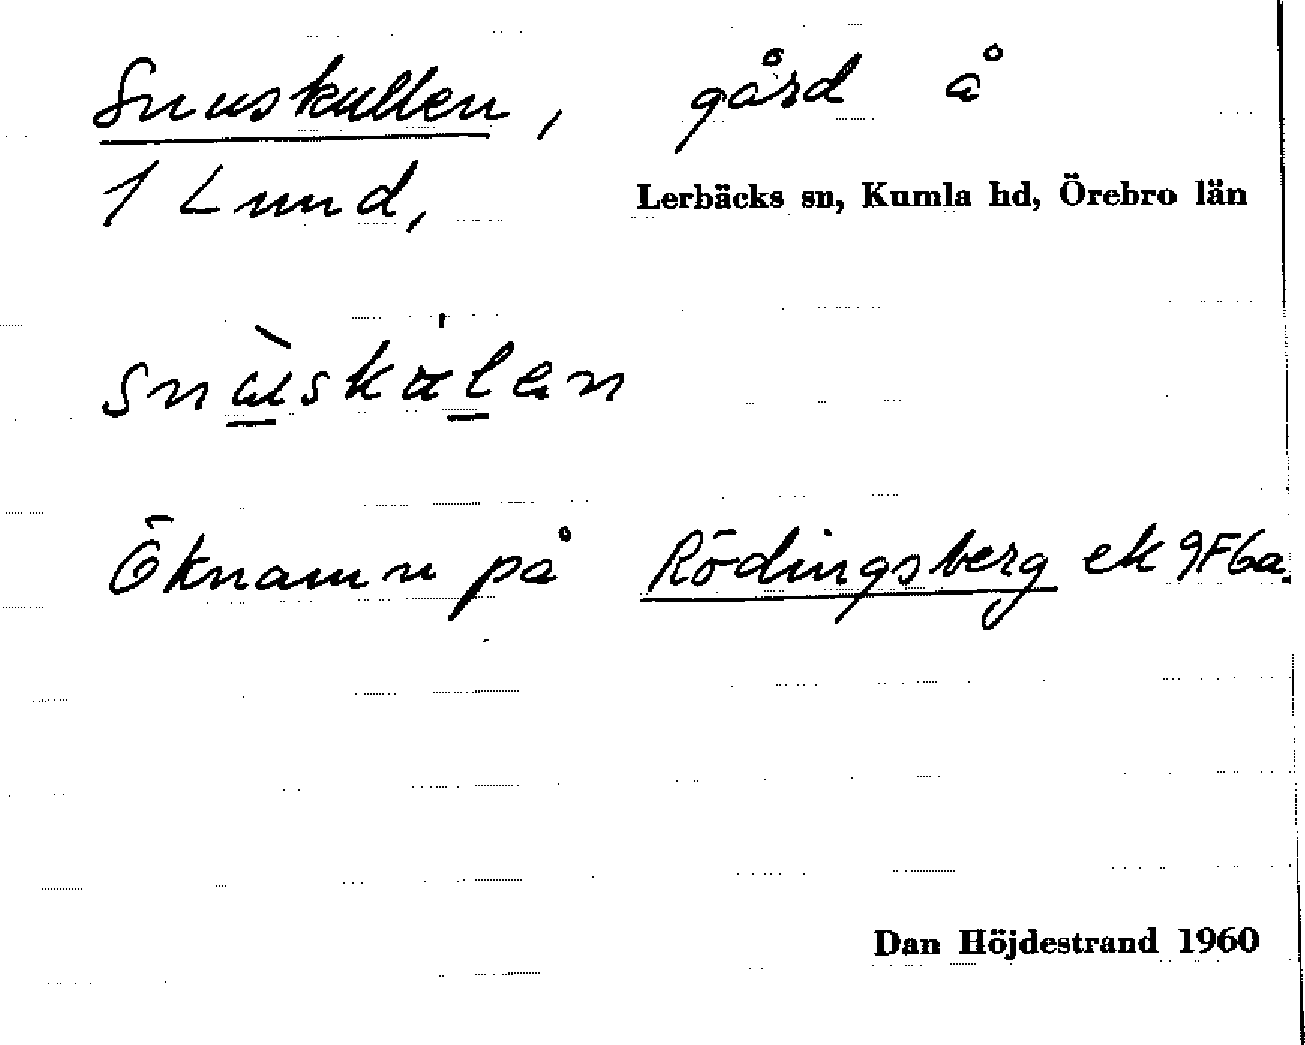 Snuskullen, gård å
1 Lund, Lerbäcks sn, Kumla hd, Örebro län
snùskúlen
Öknamn på Rödingsberg ek 9F6a.
Dan Höjdestrand 1960